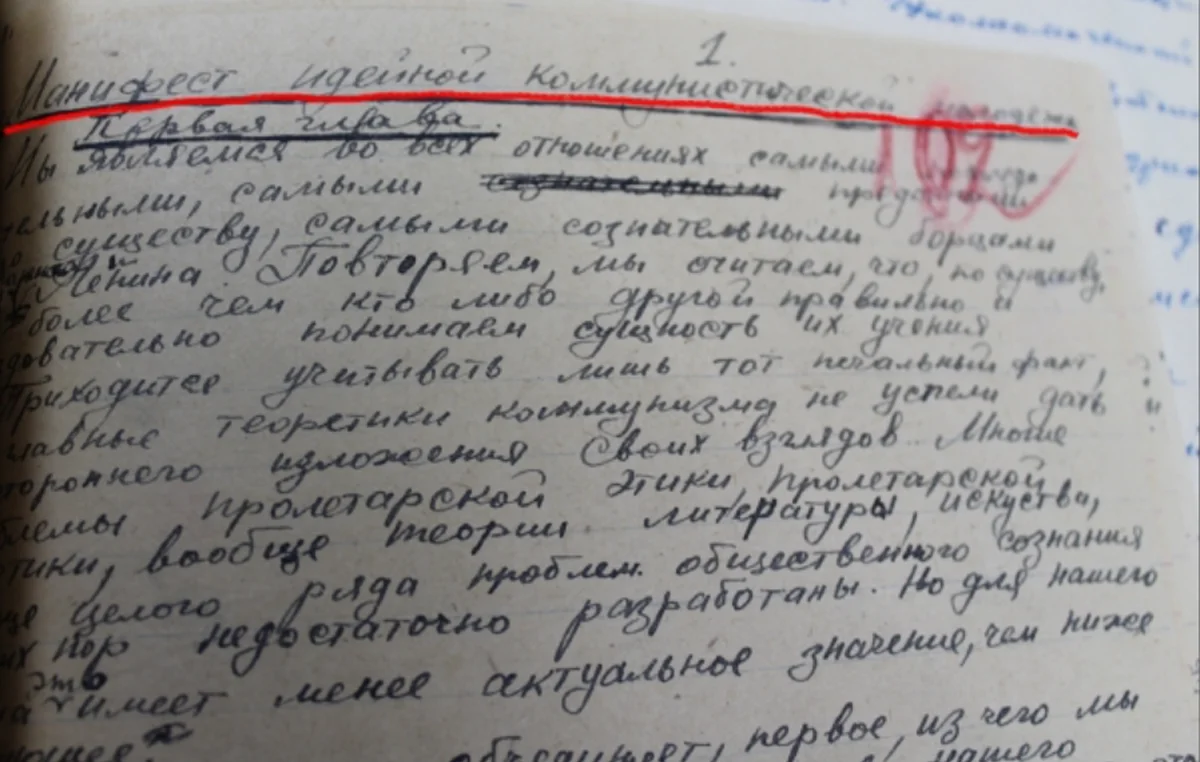 1.
Манифест идейной коммунистической молодежи
Первая глава.
Мы являемся во всех отношениях самыми
тельными, самыми сознательными
существу, самыми сознательными борцами
Ленина. Повторяем, мы считаем, что, по существу,
более чем кто либо другой правильно и
довательно понимаем сущность их учения
Приходится учитывать лишь тот печальный факт,
лавные теоретики коммунизма не успели дать
тороннего изложения своих взглядов. Многие
блемы пролетарской этики, пролетарской
тики, вообще теории литературы, искуства,
ще целого ряда проблем общественного сознания
их пор недостаточно разработаны. Но для нашего
это
имеет менее актуальное значение, чем ниже
первое, из чего мы
нашего
102